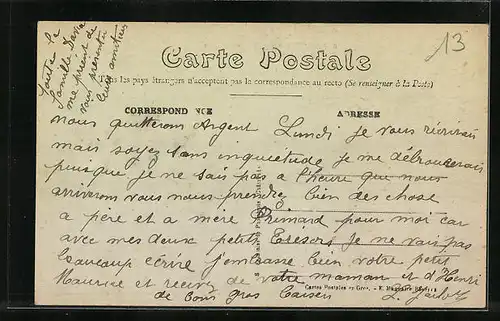 toute la
famille Dava
me prient de
vous présenter
leurs amitiés
13
Carte Postale
Tous les pays étrangers n'acceptent pas la correspondance au recto (Se renseigner à la Poste)
CORRESPONDANCE
ADRESSE
nous quitterons Argent Lundi je vous récrirais
mais soyez sans inquiétude je me débrouerais
puisque je ne sais pas a l'heure que nous
arriverons vous nous prendrez bien des chose
a père et a mère Primard pour moi car
avec mes deux petits Trésors je ne vais pas
beaucoup écrire j'embrasse bien votre petit
Maurice et recevez de votre maman et d'Henri
de bons gros baisers
Cartes Postales en Gros.